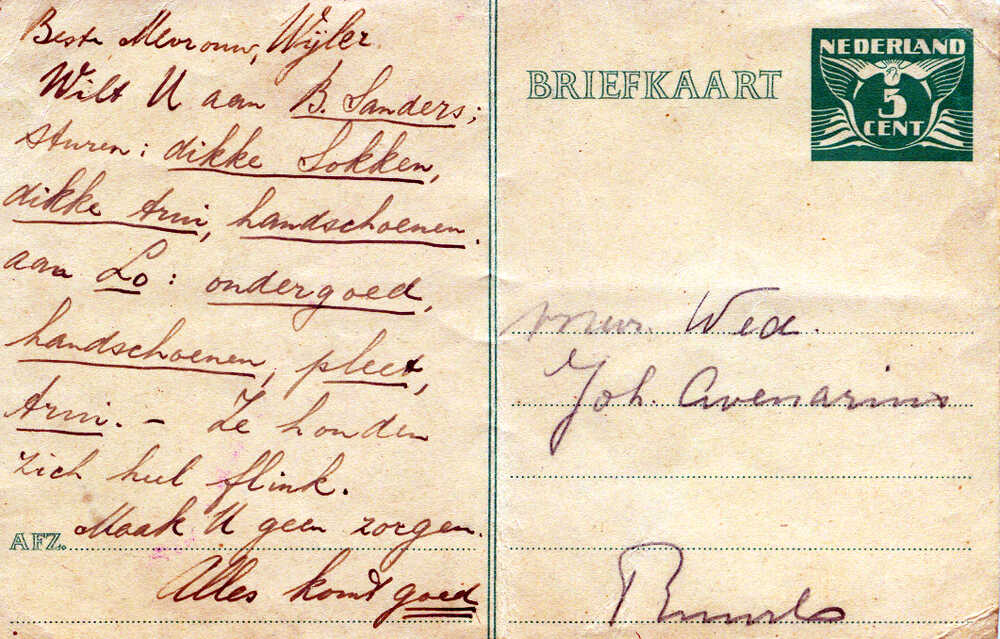 Beste Mevrouw, Wijler.
Wilt U aan B. Sanders;
sturen: dikke Sokken,
dikke trui, handschoenen.
aan Lo: ondergoed,
handschoenen, pleet,
trui. – Ze houden
zich heel flink.
Maak U geen zorgen.
Alles komt goed
AFZ.
BRIEFKAART
NEDERLAND
5
CENT
Mevr. Wed.
Joh. Avenarius
Ruurlo